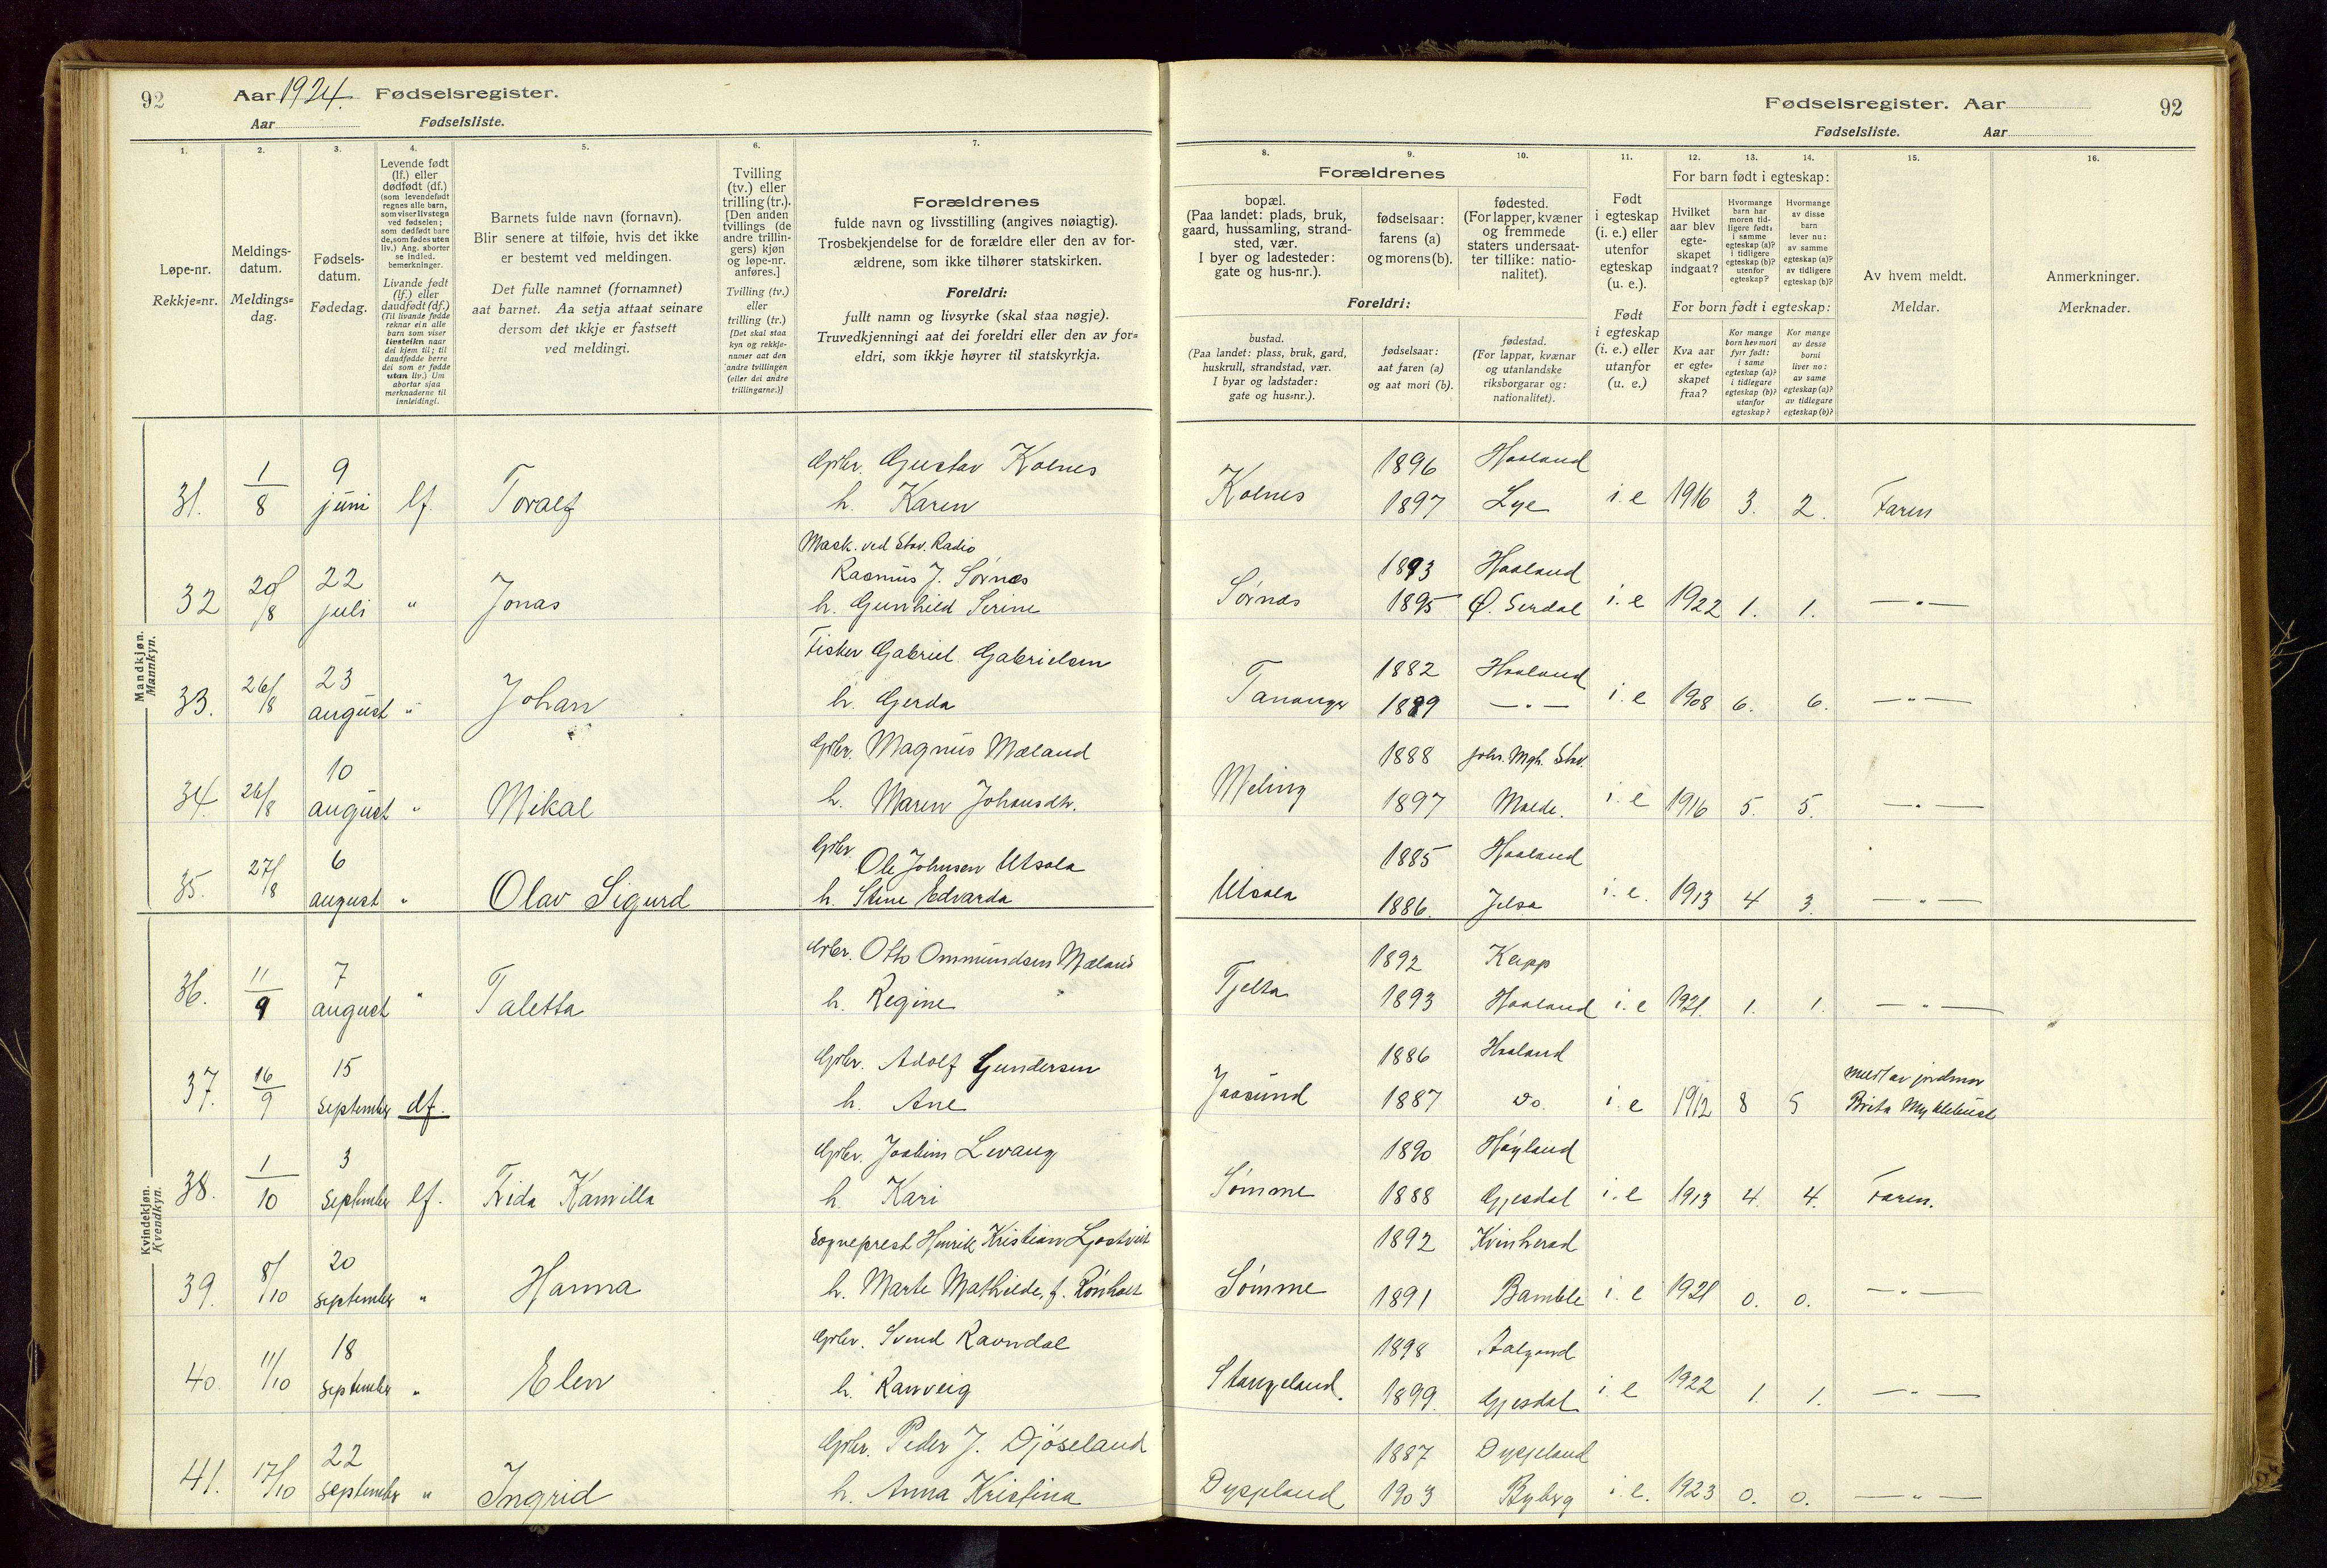 92
Aar 1924. Fødselsregister.
Aar Fødselsliste.
Fødselsregister. Aar
92
Fødselsliste. Aar
1.
Løpe-nr.
Rekkje=nr.
2.
Meldings-
datum.
Meldings=
dag.
3.
Fødsels-
datum.
Fødedag.
4.
Levende født
(lf.) eller
dødfødt (df.)
(som levendefødt
regnes alle barn,
som viser livstegn
ved fødselen;
som dødfødt bare
de, som fødes uten
liv.) Ang. aborter
se indled.
bemerkninger.
Livande født
(lf.) eller
daudfødt (df.)
(Til livande fødde
reknar ein alle
barn som viser
livsteikn naar
dei kjem til; til
daudfødde berre
dei som er fødde
utan liv.) Um
abortar sjaa
merknaderne til
innleidingi.
5.
Barnets fulde navn (fornavn).
Blir senere at tilføie, hvis det ikke
er bestemt ved meldingen.
Det fulle namnet (fornamnet)
aat barnet. Aa setja attaat seinare
dersom det ikkje er fastsett
ved meldingi.
6.
Tvilling
(tv.) eller
trilling (tr.).
[Den anden
tvillings (de
andre trillin-
gers) kjøn
og løpe-nr.
anføres.]
Tvilling (tv.)
eller
trilling (tr.)
[Det skal staa
kyn og rekkje-
numer aat den
andre tvillingen
(eller dei andre
trillingarne.)]
7.
Forældrenes
fulde navn og livsstilling (angives nøiagtig).
Trosbekjendelse for de forældre eller den av for-
ældrene, som ikke tilhører statskirken.
Foreldri:
fullt namn og livsyrke (skal staa nøgje).
Truvedkjenningi aat dei foreldri eller den av for=
eldri, som ikkje høyrer til statskyrkja.
Forældrenes
8.
bopæl.
(Paa landet: plads, bruk,
gaard, hussamling, strand-
sted, vær.
I byer og ladesteder:
gate og hus-nr.).
9.
fødselsaar:
farens (a)
og morens (b).
10.
fødested.
(For lapper, kvæner
og fremmede
staters undersaat-
ter tillike: natio-
nalitet).
Foreldri:
bustad.
(Paa landet: plass, bruk, gard,
huskrull, strandstad, vær.
I byar og ladstader:
gate og hus=nr.).
fødselsaar:
aat faren (a)
og aat mori (b).
fødestad.
(For lappar, kvænar
og utanlandske
riksborgarar og:
nationalitet).
11.
Født
i egteskap
(i. e.) eller
utenfor
egteskap
(u. e.).
Født
i egteskap
(i. e.) eller
utanfor
(u. e.)
For barn født i egteskap:
12.
Hvilket
aar blev
egte-
skapet
indgaat?
13.
Hvormange
barn har
moren tid-
ligere født:
i samme
egteskap (a)?
i tidligere
egteskap (b)?
utenfor
egteskap?
14.
Hvormange
av disse
barn
lever nu:
av samme
egteskap (a)?
av tidligere
egteskap (b)?
For born født i egteskap:
Kva aar
er egte=
skapet
fraa?
Kor mange
born hev mori
fyrr født:
i same
egteskap (a)?
i tidlegare
egteskap (b)?
utanfor
egteskap?
Kor mange
av desse
borni
liver no:
av same
egteskap (a)?
av tidlegare
egteskap (b)?
15.
Av hvem meldt.
Meldar.
16.
Anmerkninger.
Merknader.
Mandkjøn.
Mannkyn.
31. 1/8 9 juni lf. Toralf
Gbr. Gustav Kolnes
h. Karen
Kolnes 1896 Haaland
1897 Lye i. e 1916 3. 2. Faren
32 20/8 22 juli " Jonas
Mask. ved Stav. Radio
Rasmus J. Sørnes
h. Gunhild Serine
Sørnes 1893 Haaland
1895 Ø. Serdal i. e 1922 1. 1. — " —
33. 26/8 23 august " Johan
Fisker Gabriel Gabrielsen
h. Gerda
Tananger 1882 Haaland
1889 — " — i. e 1908 6. 6. — " —
34. 26/8 10 august " Mikal
Gbr. Magnus Mæland
h. Maren Johansdtr.
Meling 1888 Johs. Mgh. Stav.
1897 Malde. i. e 1916 5. 5. — " —
35. 27/8 6 august " Olav Sigurd
Gbr. Ole Johnsen Utsola
h. Stine Edvarda
Utsola 1885 Haaland
1886. Jelsa i. e. 1913 4 3. — " —
Kvindekjøn.
Kvendkyn.
36. 11/9 7 august " Taletta
Gbr. Otto Ommundsen Mæland
h. Regine
Tjelta 1892 Kepp
1893 Haaland i. e 1921. 1. 1. — " —
37. 16/9 15 september df.
Gbr. Adolf Gundersen
h. Ane
Jaasund 1886 Haaland
1887 do. i. e 1912 8 5 meldt av jordmor
Brita Myklebust
38. 1/10 3 september lf. Frida Kanvilla
Gbr. Joakim Levang
h. Kari
Sømme 1890 Høyland
1888 Gjesdal i. e 1913 4. 4. Faren.
39. 8/10 20 september " Hanna
Sogneprest Henrik Kristian Ljostveit
h. Marte Mathilde, f. Rønholt
Sømme 1892 Kvinherad
1891 Bamble i. e 1921 0. 0. — " —
40. 11/10 18 september " Elen
Gbr. Svend Ravndal
h. Ranveig
Stangeland. 1898 Aalgaard
1899. Gjesdal i. e 1922 1. 1. — " —
41. 17/10 22 september " Ingrid
Gbr. Peder J. Djøseland
h. Anna Kristina
Dysjeland 1887 Dysjeland
1903 Byberg i. e. 1923 0. 0. — " —